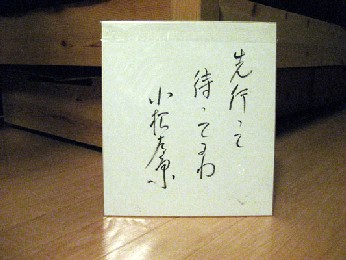 先行って
待ってるわ
小松左京